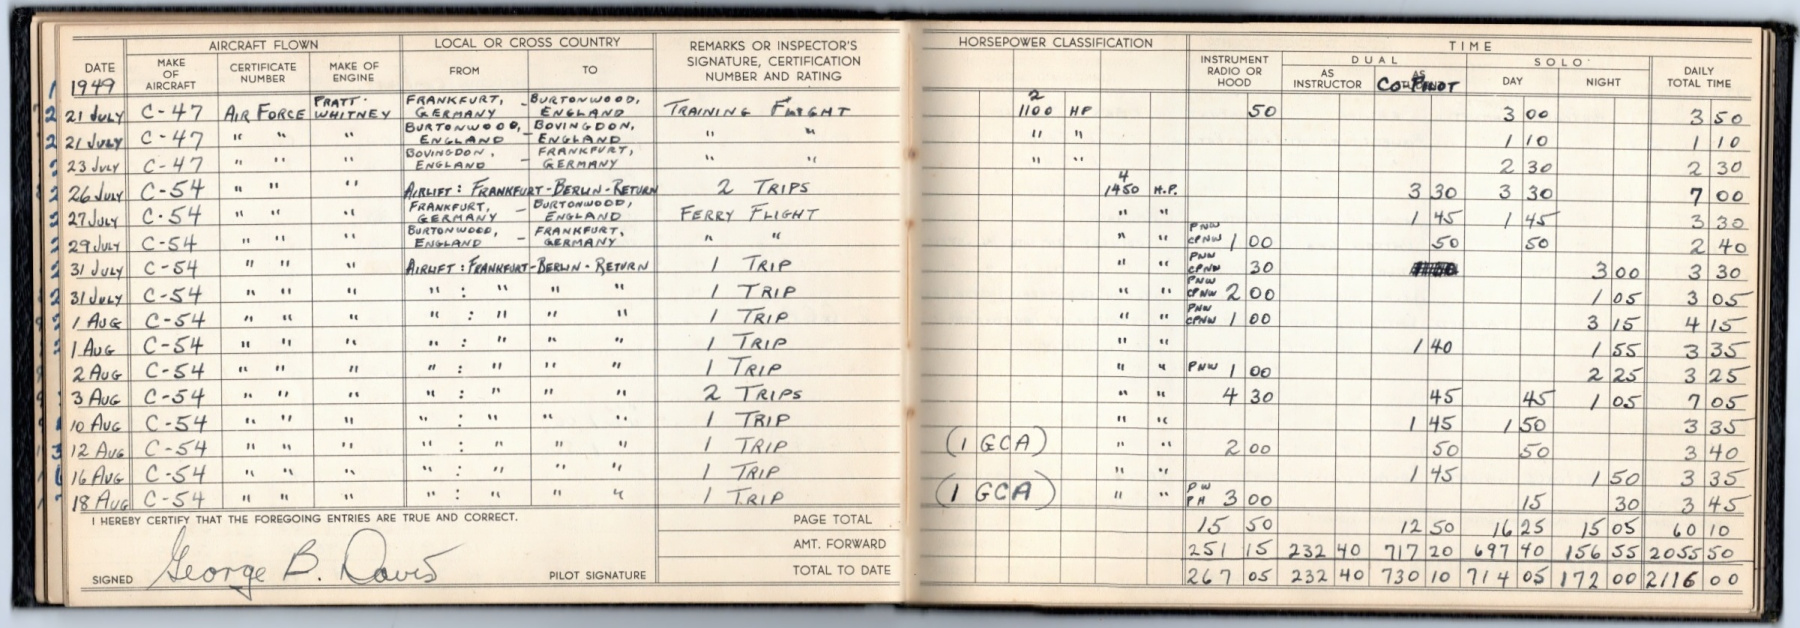 AIRCRAFT FLOWN LOCAL OR CROSS COUNTRY REMARKS OR INSPECTOR'S SIGNATURE, CERTIFICATION NUMBER AND RATING HORSEPOWER CLASSIFICATION TIME
DATE 1949 MAKE OF AIRCRAFT CERTIFICATE NUMBER MAKE OF ENGINE FROM TO INSTRUMENT RADIO OR HOOD DUAL AS INSTRUCTOR AS CO-PILOT SOLO DAY NIGHT DAILY TOTAL TIME
21 JULY C-47 AIR FORCE PRATT-WHITNEY FRANKFURT, GERMANY - BURTONWOOD, ENGLAND TRAINING FLIGHT 2 1100 HP 50 3 00 3 50
21 JULY C-47 " " " BURTONWOOD, ENGLAND - BOVINGDON, ENGLAND " " " " 1 10 1 10
23 JULY C-47 " " " BOVINGDON, ENGLAND - FRANKFURT, GERMANY " " " " 2 30 2 30
26 JULY C-54 " " " AIRLIFT: FRANKFURT-BERLIN-RETURN 2 TRIPS 4 1450 H.P. 3 30 3 30 7 00
27 JULY C-54 " " " FRANKFURT, GERMANY - BURTONWOOD, ENGLAND FERRY FLIGHT " " 1 45 1 45 3 30
29 JULY C-54 " " " BURTONWOOD, ENGLAND - FRANKFURT, GERMANY " " " " PNW CPNW 1 00 50 50 2 40
31 JULY C-54 " " " AIRLIFT: FRANKFURT-BERLIN-RETURN 1 TRIP " " PNW CPNW 30 3 00 3 30
31 JULY C-54 " " " " : " " " 1 TRIP " " PNW CPNW 2 00 1 05 3 05
1 AUG C-54 " " " " : " " " 1 TRIP " " PNW CPNW 1 00 3 15 4 15
1 AUG C-54 " " " " : " " " 1 TRIP " " 1 40 1 55 3 35
2 AUG C-54 " " " " : " " " 1 TRIP " " PNW 1 00 2 25 3 25
3 AUG C-54 " " " " : " " " 2 TRIPS " " 4 30 45 45 1 05 7 05
10 AUG C-54 " " " " : " " " 1 TRIP " " 1 45 1 50 3 35
12 AUG C-54 " " " " : " " " 1 TRIP (1 GCA) " " 2 00 50 50 3 40
16 AUG C-54 " " " " : " " " 1 TRIP " " 1 45 1 50 3 35
18 AUG C-54 " " " " : " " " 1 TRIP (1 GCA) " " PW PH 3 00 15 30 3 45
I HEREBY CERTIFY THAT THE FOREGOING ENTRIES ARE TRUE AND CORRECT. PAGE TOTAL 15 50 12 50 16 25 15 05 60 10
AMT. FORWARD 251 15 232 40 717 20 697 40 156 55 2055 50
SIGNED George B. Davis PILOT SIGNATURE TOTAL TO DATE 267 05 232 40 730 10 714 05 172 00 2116 00